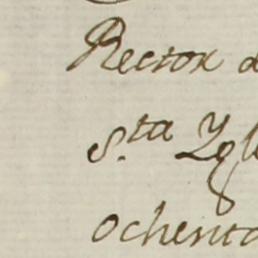 Rector d
S.ta Ygl
ochenta